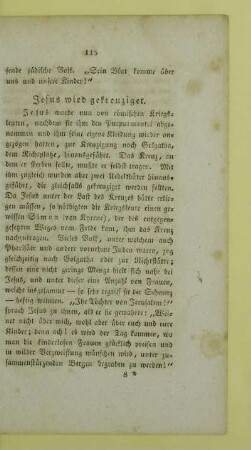 115
sende jüdische Volk. „Sein Blut komme über
uns und unsere Kinder!“
Jesus wird gekreuziget.
Jesus wurde nun von römischen Kriegs-
leuten, nachdem sie ihm den Purpurmantel abge-
nommen und ihm seine eigene Kleidung wieder an-
gezogen hatten, zur Kreuzigung nach Golgatha,
dem Richtplatze, hinausgeführt. Das Kreuz, an
dem er sterben sollte, mußte er selbst tragen. Mit
ihm wurden aber auch zwei Uebelthäter hinausge-
führt, die gleichfalls gekreuziget werden sollten.
Da Jesus unter der Last des Kreuzes hätte erlie-
gen müssen, so nöthigten die Kriegsleute einen ge-
wissen Simon (von Kyrene), der des entgegen-
gesetzten Weges vom Felde kam, ihm das Kreuz
nachzutragen. Vieles Volk, unter welchem auch
Pharisäer und andere vornehme Juden waren, zog
gleichzeitig nach Golgatha oder zur Richtstätte;
dessen eine nicht geringe Menge hielt sich nahe bei
Jesus, und unter dieser eine Anzahl von Frauen,
welche insgesammt — so sehr ergriff sie der Schmerz
— heftig weinten. „Ihr Töchter von Jerusalem!“
sprach Jesus zu ihnen, als er sie gewahrte: „Wei-
net nicht über mich, wohl aber über euch und eure
Kinder; denn ach! es wird der Tag kommen, wo
man die kinderlosen Frauen glücklich preisen und
in wilder Verzweiflung wünschen wird, unter zu-
sammenstürzenden Bergen begraben zu werden!“
8 *